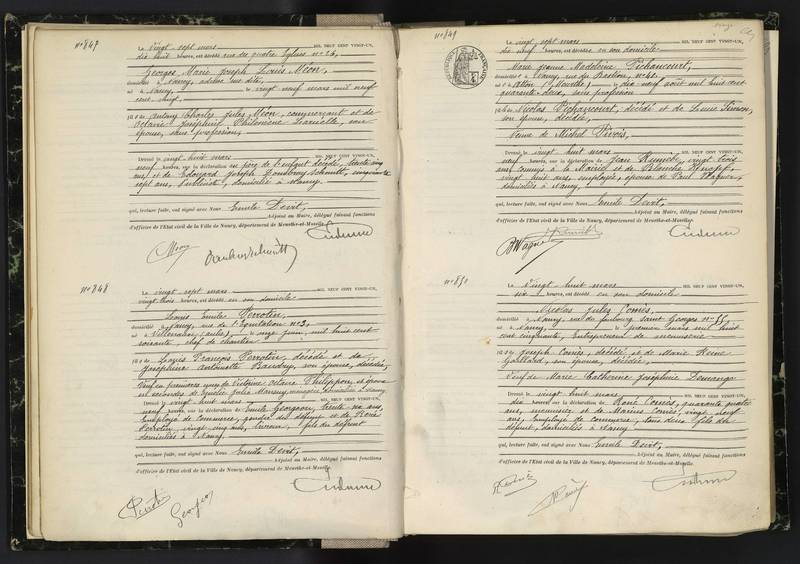 N° 847
Le vingt sept mars MIL NEUF CENT VINGT-UN,
dix huit heures, est décédé rue des quatre Eglises n° 24,
Georges Marie Joseph Louis Méon,
domicilié à Nancy, adresse sus dite,
né à Nancy, le vingt neuf mars mil neuf
cent neuf,
fils de Antony Charles Jules Méon, commerçant et de
Octavie Joséphine Philomène son
épouse, sans profession,
Devant vingt huit mars MIL NEUF CENT VINGT-UN,
neuf heures, sur la déclaration des père de l'enfant décédé,
ans et de Edouard Joseph cinquante
sept ans, domicilié à Nancy
qui, lecture faite, ont signé avec Nous Emile Devit,
Adjoint au Maire, délégué faisant fonctions
d'officier de l'Etat civil de la Ville de Nancy, département de Meurthe-et-Moselle.
N° 848
Le vingt sept mars MIL NEUF CENT VINGT-UN,
vingt trois heures, est décédé en son domicile
Louis Emile Perrotin,
domicilié à Nancy, rue de l'Equitation n° 3,
né à le onze juin, mil huit cent
soixante chef de chantier
fils de Louis François Perrotin, décédé et de
Joséphine Antoinette Baudry, son épouse, décédée,
Veuf en premières noces de Victoire Octavie Philippon, et époux
en secondes de Julie ménagère, domiciliée à Nancy
Devant vingt huit mars MIL NEUF CENT VINGT-UN,
neuf heures, sur la déclaration de Emile Georgeon, trente un ans,
Employé de Commerce, gendre du défunt et de René
Perrotin, vingt cinq ans, fils du défunt
domiciliés à Nancy
qui, lecture faite, ont signé avec Nous Emile Devit,
Adjoint au Maire, délégué faisant fonctions
d'officier de l'Etat civil de la Ville de Nancy, département de Meurthe-et-Moselle.
Perrotin
Georgeon
N° 849
Le vingt sept mars MIL NEUF CENT VINGT-UN,
dix neuf heures, est décédée en son domicile
Marie Jeanne Madeleine Pichancourt,
domiciliée à Nancy, rue du Bastion, n° 41,
née à (Meurthe) le dix neuf août mil huit cent
quarante deux, sans profession
fille de Nicolas Pichancourt, décédé et de Louise Simon,
son épouse, décédée,
Veuve de Michel
Devant vingt huit mars MIL NEUF CENT VINGT-UN,
neuf heures, sur la déclaration de Jean vingt trois
ans, commis à la Mairie et de Blanche
vingt huit ans, employée, épouse de Paul Wagner,
domiciliés à Nancy
qui, lecture faite, ont signé avec Nous Emile Devit,
Adjoint au Maire, délégué faisant fonctions
d'officier de l'Etat civil de la Ville de Nancy, département de Meurthe-et-Moselle.
B Wagner
N° 850
Le vingt huit mars MIL NEUF CENT VINGT-UN,
six heures, est décédé en son domicile
Nicolas Jules Comès,
domicilié à Nancy, rue du faubourg Saint Georges n° 55,
né à Nancy, le premier mars mil huit
cent cinquante, Entrepreneur de menuiserie
fils de Joseph Comès, décédé et de Marie Reine
Gaillard, son épouse, décédée,
Veuf de Marie Catherine Joséphine Demange
Devant vingt huit mars MIL NEUF CENT VINGT-UN,
dix heures, sur la déclaration de René Comès, quarante quatre
ans, menuisier et de Marius Comès, vingt neuf
ans, Employé de commerce, tous deux fils du
défunt, domiciliés à Nancy
qui, lecture faite, ont signé avec Nous Emile Devit,
Adjoint au Maire, délégué faisant fonctions
d'officier de l'Etat civil de la Ville de Nancy, département de Meurthe-et-Moselle.